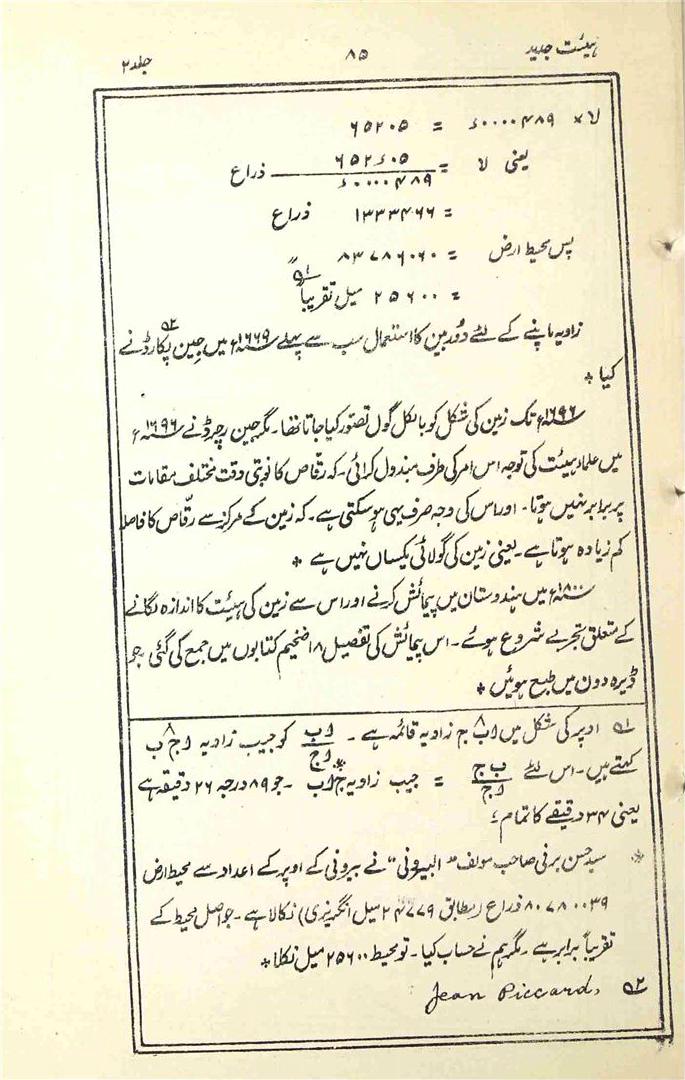 ہیئت جدید ۸۵ جلد ۲
لا × ۶۰۰۰۰۴۸۹ = ۶۵۲۰۵
یعنی لا = ۶۵۲۶۰۵ / ۶۰۰۰۰۴۸۹ ذراع
= ۱۳۳۳۴۶۶ ذراع
پس محیط ارض = ۸۳۷۸۶۰۶۰ ″
= ۲۵۶۰۰ میل تقریباً ۱ه
زاویہ ماپنے کے لئے دُوربین کا استعمال سب سے پہلے ۱۶۶۹ء میں جین پکارڈ ۲ه نے
کیا *
۱۶۹۶ء تک زمین کی شکل کو بالکل گول تصور کیا جاتا تھا۔ مگر جین رچرڈ نے ۱۶۹۶ء
میں علماء ہیئت کی توجہ اس امر کی طرف مبذول کرائی۔ کہ رقّاص کا نوبتی وقت مختلف مقامات
پر برابر نہیں ہوتا۔ اور اس کی وجہ صرف یہی ہو سکتی ہے۔ کہ زمین کے مرکز سے رقّاص کا فاصلہ
کم زیادہ ہوتا ہے۔ یعنی زمین کی گولائی یکساں نہیں ہے *
۱۸۰۰ء میں ہندوستان میں پیمائش کرنے اور اس سے زمین کی ہیئت کا اندازہ لگانے
کے متعلق تجربے شروع ہوئے۔ اس پیمائش کی تفصیل ۱۸ ضخیم کتابوں میں جمع کی گئی جو
ڈیرہ دون میں طبع ہوئیں *
۱ه اوپر کی شکل میں ا ب ج زاویہ قائمہ ہے۔ اب / اج کو جیب زاویہ ا ج ب
کہتے ہیں۔ اس لئے ب ج / ا ج = جیب زاویہ ج ا ب* ۔ جو ۸۹ درجہ ۲۶ دقیقہ ہے
یعنی ۳۴ دقیقے کا تمام ؛
* سید حسن برنی صاحب مؤلف "البیرونی" نے بیرونی کے اوپر کے اعداد سے محیط ارض
۸۰۷۸۰۰۳۹ ذراع (مطابق ۲۴۷۷۹ میل انگریزی) نکالا ہے۔ جو اصل محیط کے
تقریباً برابر ہے۔ مگر ہم نے حساب کیا۔ تو محیط ۲۵۶۰۰ میل نکلا *
۲ه Jean Piccard.